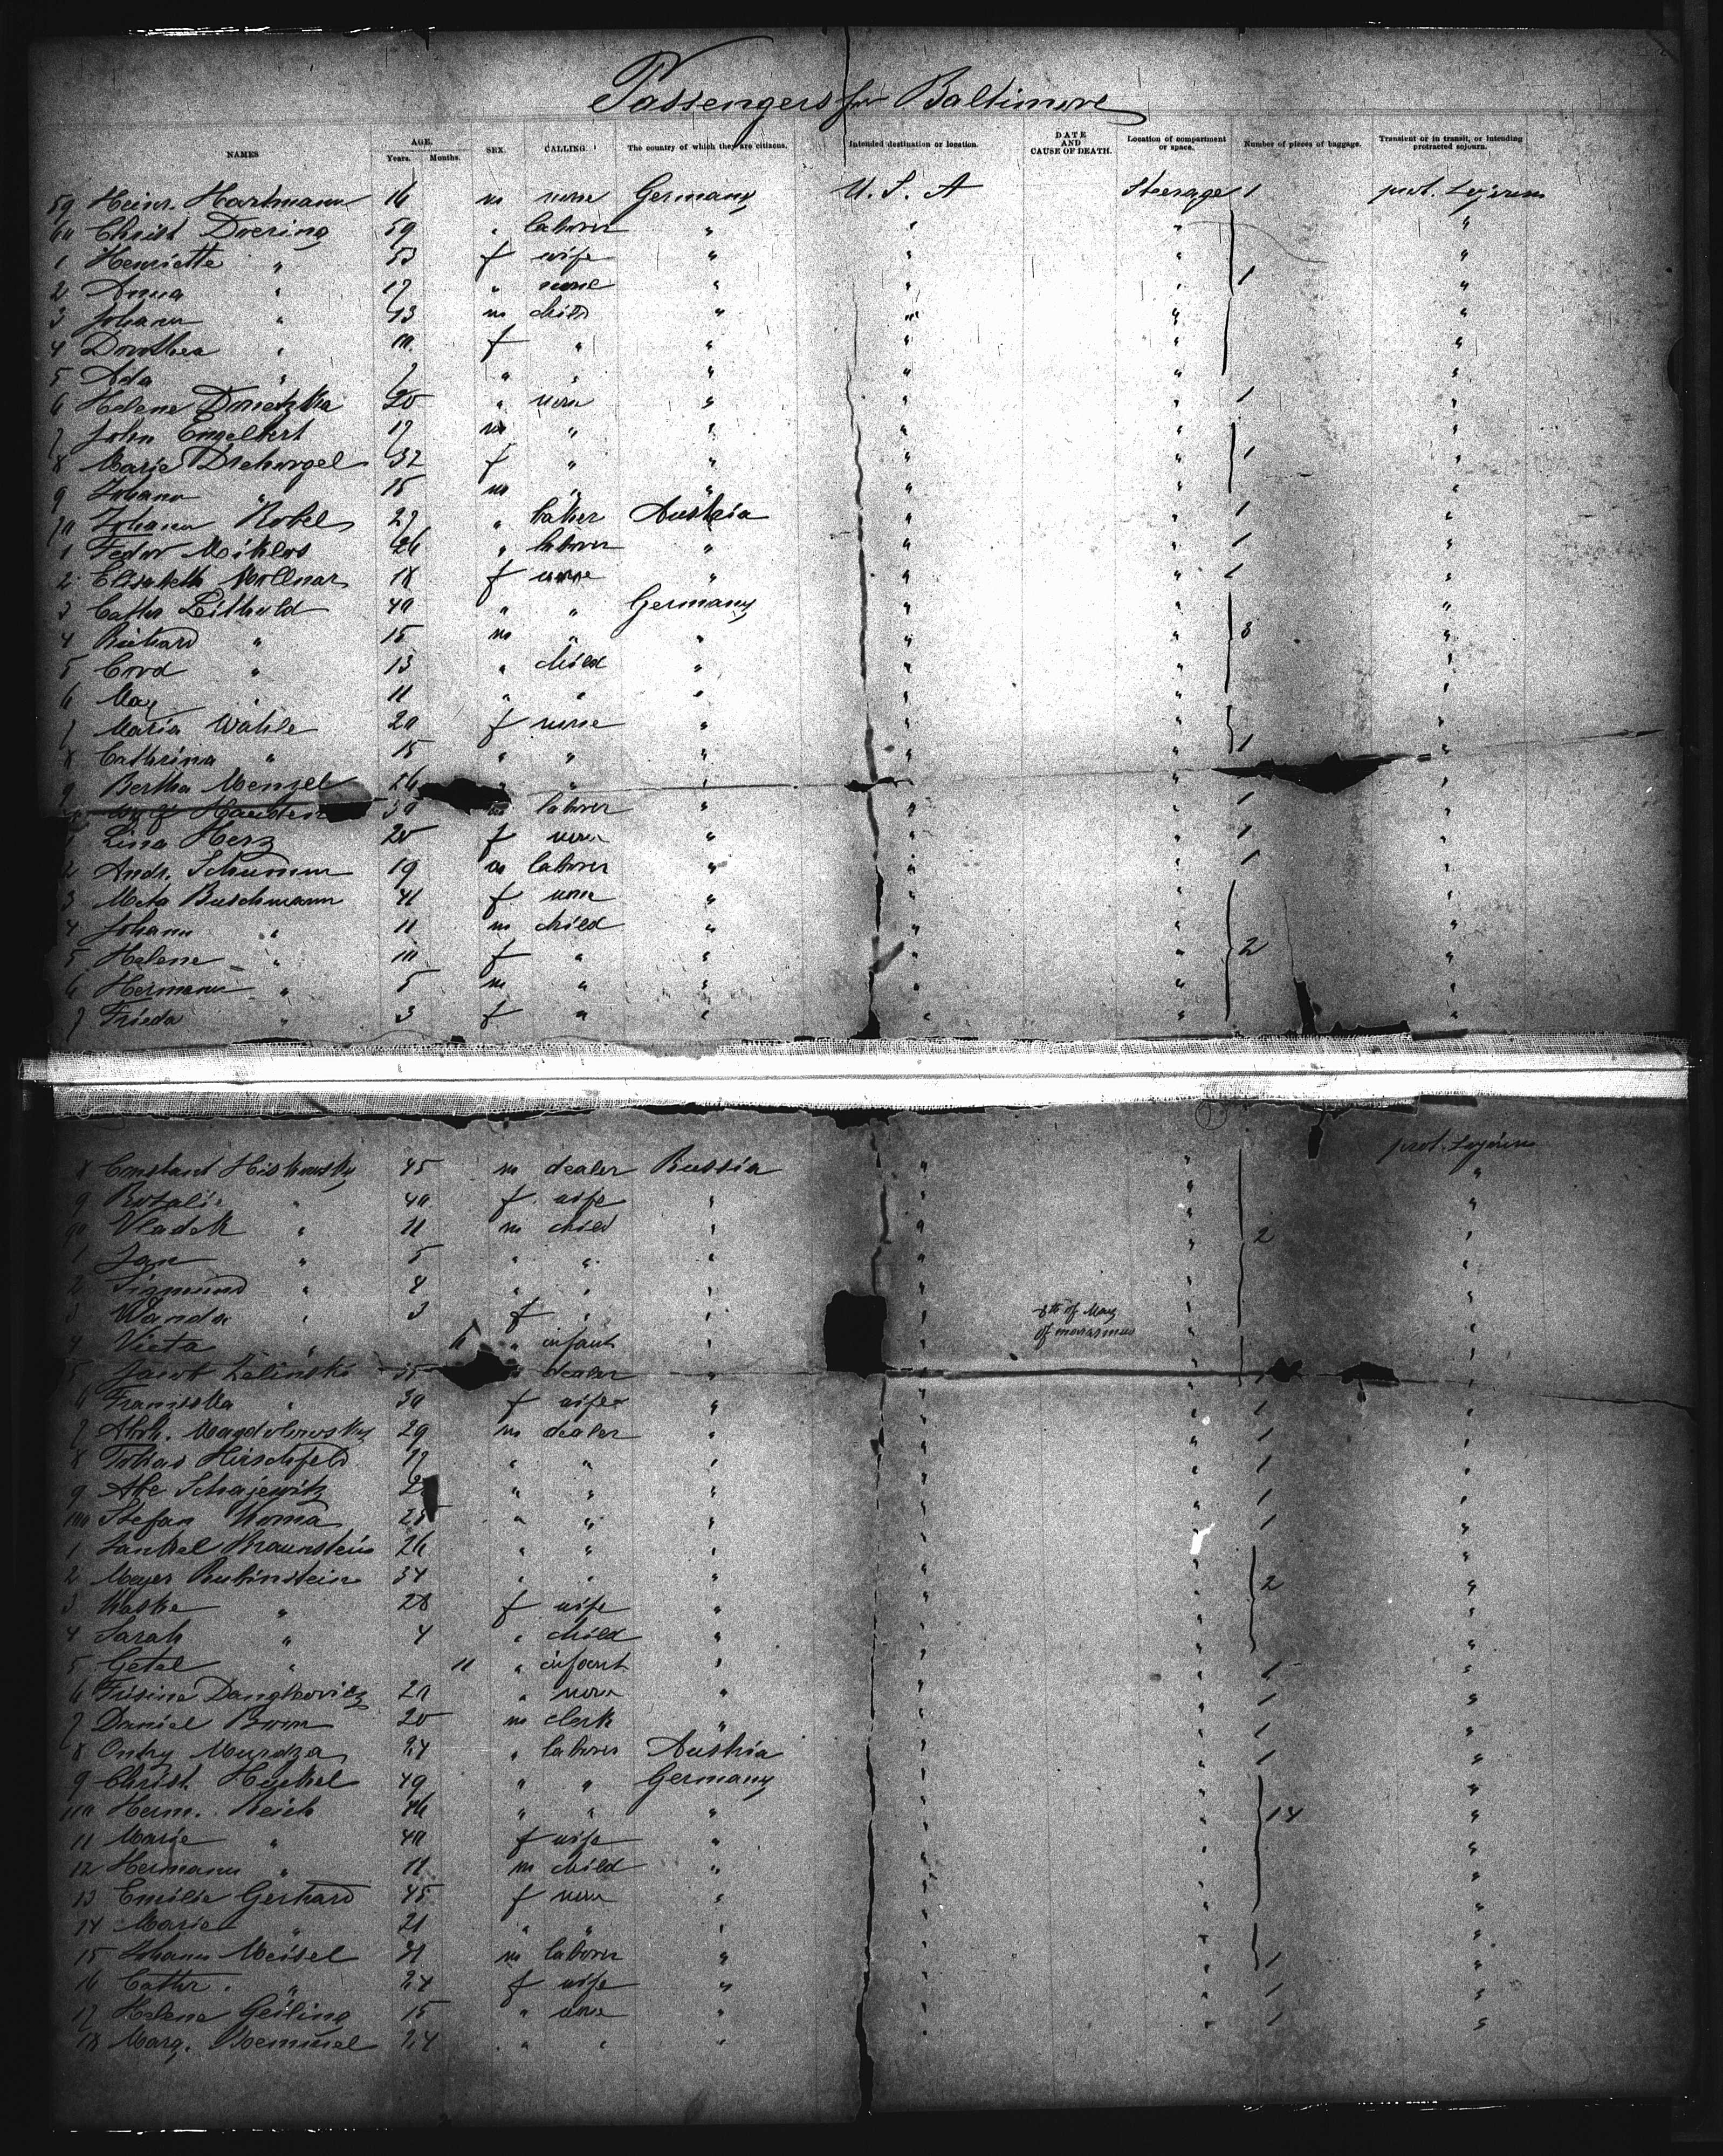 Passengers for Baltimore
NAMES AGE. Years. Months. SEX. CALLING. The country of which they are citizens. Intended destination or location. DATE AND CAUSE OF DEATH. Location of compartment or space. Number of pieces of baggage. Transient or in transit, or intending protracted sojourn.
59 Heinr. Hartmann 16 m none Germany U. S. A Steerage 1 prot. Sojourn
60 Christ Doering 59 " laborer " " " "
1 Henriette " 53 f wife " " " "
2 Anna " 17 " none " " " 1 "
3 Johann " 13 m child " " " "
4 Dorothea " 10 f " " " " "
5 Ada " 7 " " " " " "
6 Helene 20 " none " " " 1 "
7 John Engelbert 17 m " " " " "
8 Marie 32 f " " " " 1 "
9 Johann " 15 m " " " " "
70 Johann Robel 27 " baker Austria " " 1 "
1 Fedor Miklos 26 " laborer " " " 1 "
2 Elisabeth Mollnar 18 f none " " " 1 "
3 Cath. 40 " " Germany " " "
4 Richard " 15 m " " " " 3 "
5 Cord " 13 " child " " " "
6 Max " 11 " " " " " "
7 Maria Wahle 20 f none " " " "
8 Cathrina " 15 " " " " " 1 "
9 Bertha Menzel 26 " " " " " "
laborer " " " 1 "
1 Lina Herz 20 f none " " " 1 "
2 Andr. Schumm 19 m laborer " " " 1 "
3 Meta Buschmann 41 f none " " " "
4 Johann " 11 m child " " " "
5 Helene " 10 f " " " " 2 "
6 Hermann " 5 m " " " " "
7 Frieda " 3 f " " " " "
prot. Sojourn
8 Constant 45 m dealer Russia " " "
9 Rosalie " 40 f wife " " " "
90 Vladek " 11 m child " " " 2 "
1 Jan " 5 " " " " " "
2 Sigmund " 4 " " " " " "
3 Wanda " 3 f " " " " "
4 Victa " 6 " infant " " 8th of May of marasmus " "
5 Jacob Zelinski 35 dealer " " " "
6 Franziska " 30 f wife " " " 1 "
7 Abrh. 29 m dealer " " " 1 "
8 Tobias Hirschfeld 17 " " " " " 1 "
9 Abe Schajewitz " " " " " 1 "
100 Stefan Koma 25 " " " " " 1 "
1 Jankel Braunstein 26 " " " " " "
2 Meyer Rubinstein 34 " " " " " 2 "
3 " 28 f wife " " " "
4 Sarah " 4 " child " " " "
5 Getel " 11 " infant " " " 1 "
6 " none " " " 1 "
7 Daniel 20 m clerk " " " 1 "
8 24 " laborer Austria " " 1 "
9 Christ. 49 " " Germany " " "
110 Herm. Reich 46 " " " " " 14 "
11 Marie " 40 f wife " " " "
12 Hermann " 11 m child " " " "
13 Emilie Gerhard 45 f none " " " "
14 Marie " 21 " " " " " "
15 Johann Meisel 31 m laborer " " " 1 "
16 Cathr. " 24 f wife " " " 1 "
17 Helene Geiling 15 " none " " " 1 "
18 Marg. 24 " " "